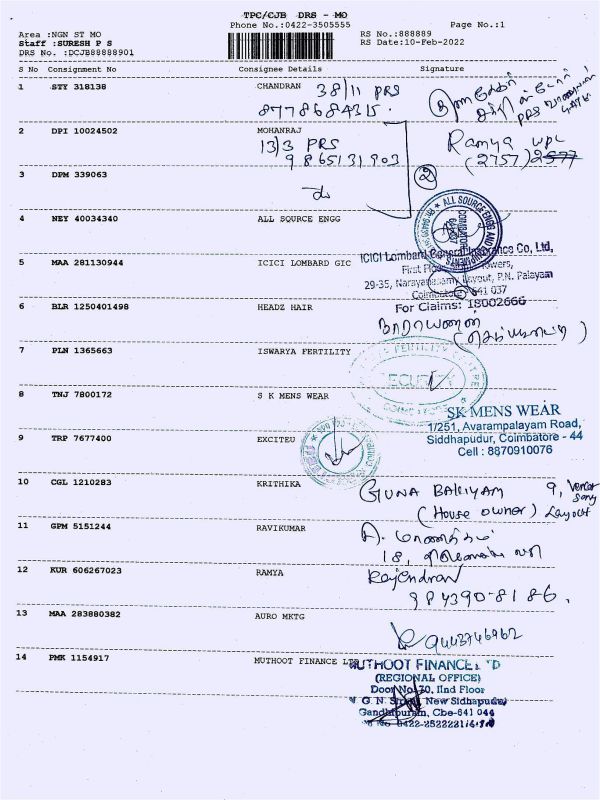 TPC/CJB DRS - MO
Phone No.:0422-3505555 Page No.:1
Area :NGN ST MO RS No.:888889
Staff :SURESH P S RS Date:10-Feb-2022
DRS No. :DCJB88888901
S No Consignment No Consignee Details Signature
1 STY 318138 CHANDRAN 38/11 PRS
8778684315.
2 DPI 10024502 MOHANRAJ
13/3 PRS Ramya WPC
9865131903 (2757)
3 DPM 339063
2
4 NEY 40034340 ALL SOURCE ENGG
ALL SOURCE ENGG AND
5 MAA 281130944 ICICI LOMBARD GIC
ICICI Lombard General Insurance Co, Ltd,
29-35, Narayanasamy Layout, P.N. Palayam
Coimbatore 641 037
For Claims: 18002666
6 BLR 1250401498 HEADZ HAIR
நாராயணன்
7 PLN 1365663 ISWARYA FERTILITY
FERTILITY CENTRE
SECURITY
8 TNJ 7800172 S K MENS WEAR
SK MENS WEAR
1/251, Avarampalayam Road,
Siddhapudur, Coimbatore - 44
Cell : 8870910076
9 TRP 7677400 EXCITEU
10 CGL 1210283 KRITHIKA
GUNA BAKIYAM 9,
(House owner) Layout
11 GPM 5151244 RAVIKUMAR
18,
12 KUR 606267023 RAMYA Rajendran
984390-8186.
13 MAA 283880382 AURO MKTG
9443746962
14 PMK 1154917 MUTHOOT FINANCE LTD
MUTHOOT FINANCE LTD
(REGIONAL OFFICE)
Door No. 70, IInd Floor
V G. N. Street, New Sidhapudur
Gandhipuram, Cbe-641 044